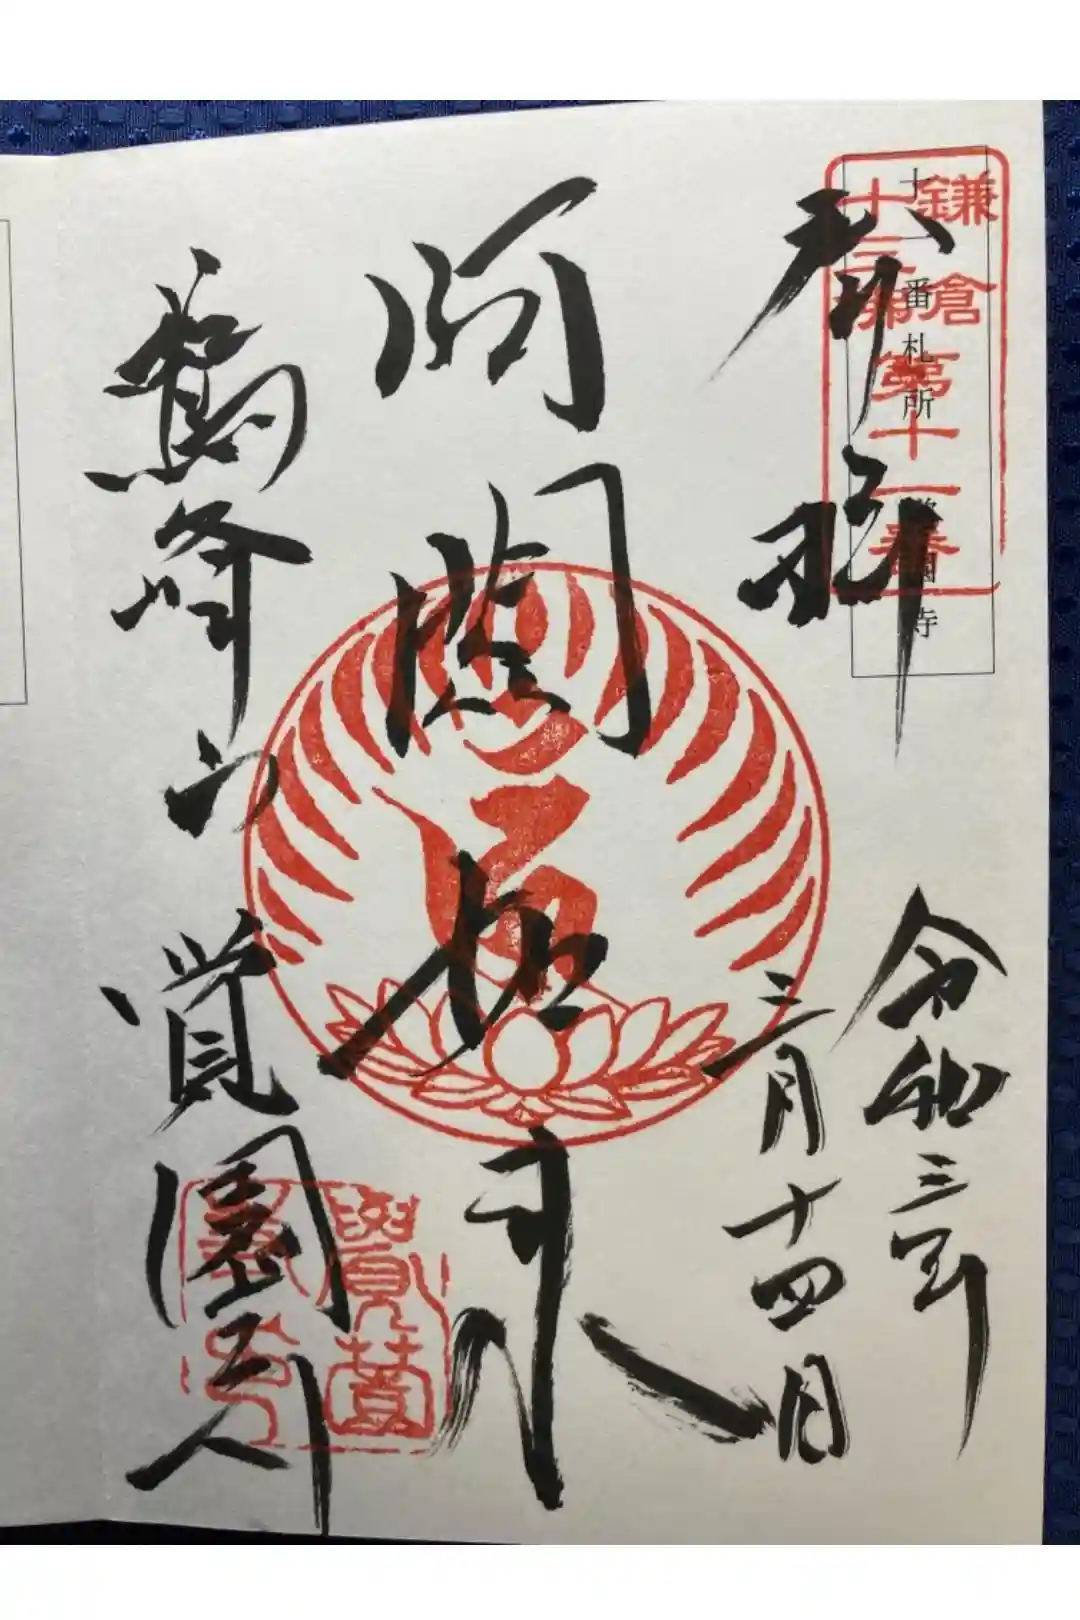 十一番札所 覚園寺
鎌倉
十三佛
第十一番
奉拝
令和三年
三月十四日
阿閦如来
鷲峰山
覚園寺